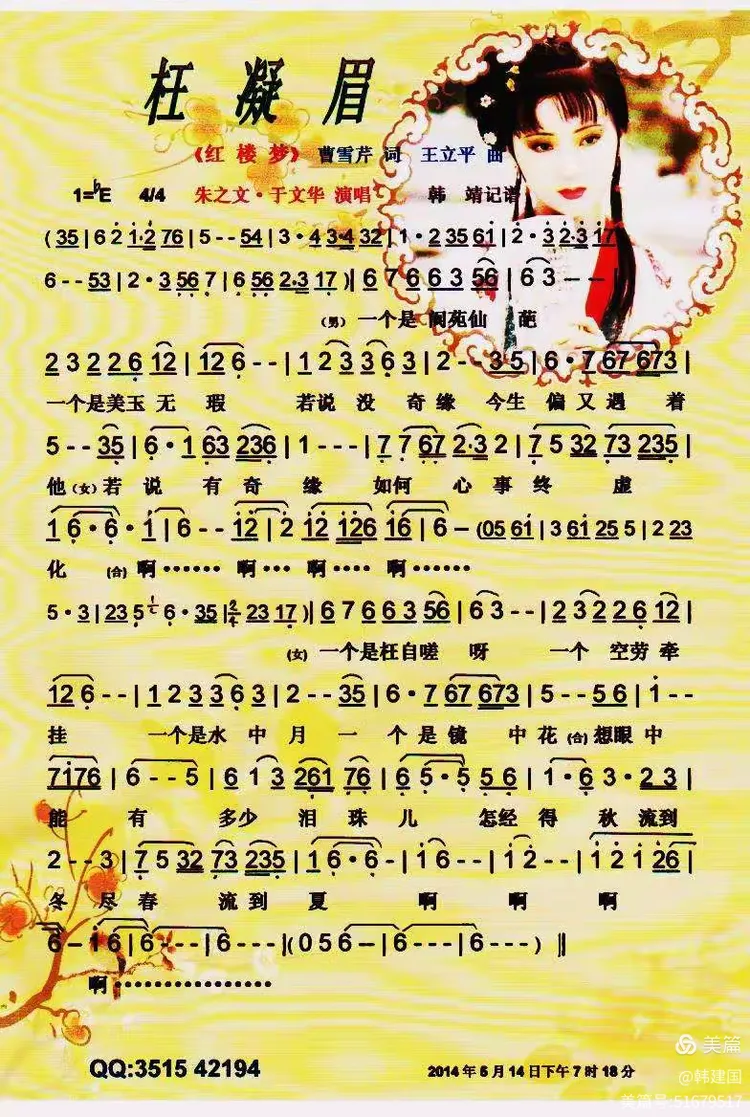 枉 凝 眉
《红 楼 梦》 曹雪芹 词 王立平 曲
1=♭E 4/4 朱之文·于文华 演唱 韩 靖记谱
(35|6 2 1·2 76|5 - - 54|3·4 3·4 32|1·2 35 61|2·3 2·3 17
6 - - 53|2·3 56 7|6 56 2·3 17)|6 7 6 6 3 56|6 3 - -|
(男) 一个是 阆苑仙 葩
2 3 2 2 6 12|12 6 - -|1 2 3 3 6 3|2 - - 3 5|6·7 67 673|
一个是美玉 无 瑕 若说 没 奇缘 今生 偏 又 遇 着
5 - - 35|6·1 63 236|1 - - -|7 7 67 2·3 2|7 5 32 73 235|
他 (女) 若 说 有 奇 缘 如何 心 事 终 虚
1 6·6·1|6 - - 12|2 12 126 16|6 - (05 61|3 61 25 5|2 23
化 (合) 啊…… 啊… 啊… 啊……
5·3|23 5 6·35|2/4 23 17)|6 7 6 6 3 56|6 3 - -|2 3 2 2 6 12|
(女) 一个是枉自嗟 呀 一个 空劳 牵
12 6 - -|1 2 3 3 6 3|2 - - 35|6·7 67 673|5 - - 56|1 - -
挂 一个是水 中 月 一 个 是 镜 中 花 (合) 想眼 中
7176|6 - - 5|6 1 3 261 76|6 5·5 56|1·6 3·2 3|
能 有 多少 泪 珠 儿 怎经 得 秋 流到
2 - - 3|7 5 32 73 235|1 6·6 -|6 - -|12 - -|1 2 1 26|
冬 尽 春 流 到 夏 啊 啊 啊
6 - 16|6 - - -|6 - - -|(0 5 6 -|6 - - -|6 - - - )‖
啊……………
QQ:3515 42194
2014 年 5 月 14 日下午 7 时 18 分
美篇
@韩建国
美篇号:51679517